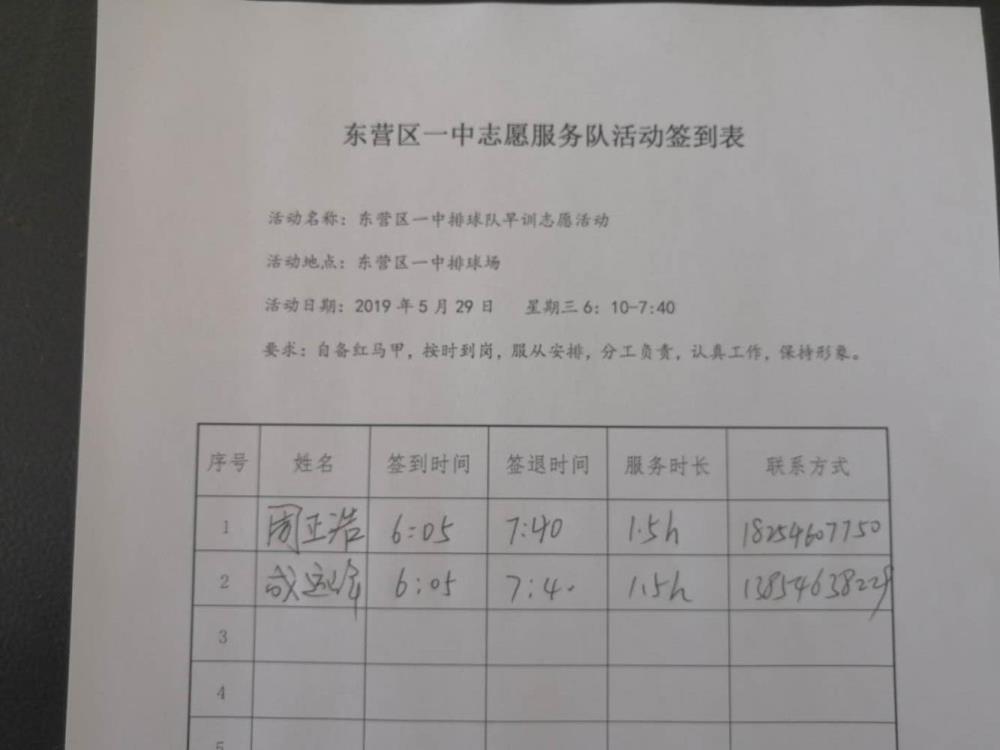 东营区一中志愿服务队活动签到表
活动名称：东营区一中排球队早训志愿活动
活动地点：东营区一中排球场
活动日期：2019 年 5 月 29 日 星期三 6：10-7:40
要求：自备红马甲，按时到岗，服从安排，分工负责，认真工作，保持形象。
序号 姓名 签到时间 签退时间 服务时长 联系方式
1 周正浩 6:05 7:40 1.5h 18254607750
2 6:05 7:40 1.5h 13854638229
3
4
5